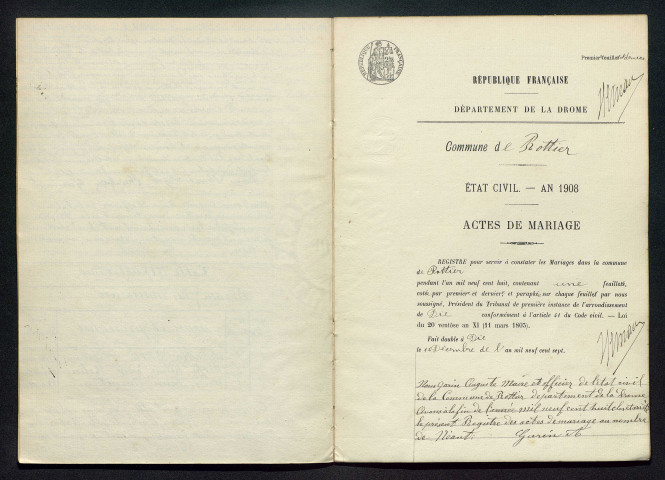 Premier feuillet
RÉPUBLIQUE FRANÇAISE
RÉPUBLIQUE FRANÇAISE
DÉPARTEMENT DE LA DROME
Commune de Rottier
ÉTAT CIVIL. — AN 1908
ACTES DE MARIAGE
REGISTRE pour servir à constater les Mariages dans la commune
de Rottier
pendant l'an mil neuf cent huit, contenant une feuille,
coté par premier et dernier et paraphé, sur chaque feuillet par nous
soussigné, Président du Tribunal de première instance de l'arrondissement
de Die conformément à l'article 41 du Code civil. — Loi
du 20 ventôse an XI (11 mars 1803).
Fait double à Die
le Décembre de l'an mil neuf cent sept.
Nous Garin Auguste Maire et officier de l'état civil
de la Commune de Rottier département de la Drome
Avons à la fin de l'année mil neuf cent huit clos et arrêté
le présent Registre des actes de mariage au nombre
de Néant. Garin A